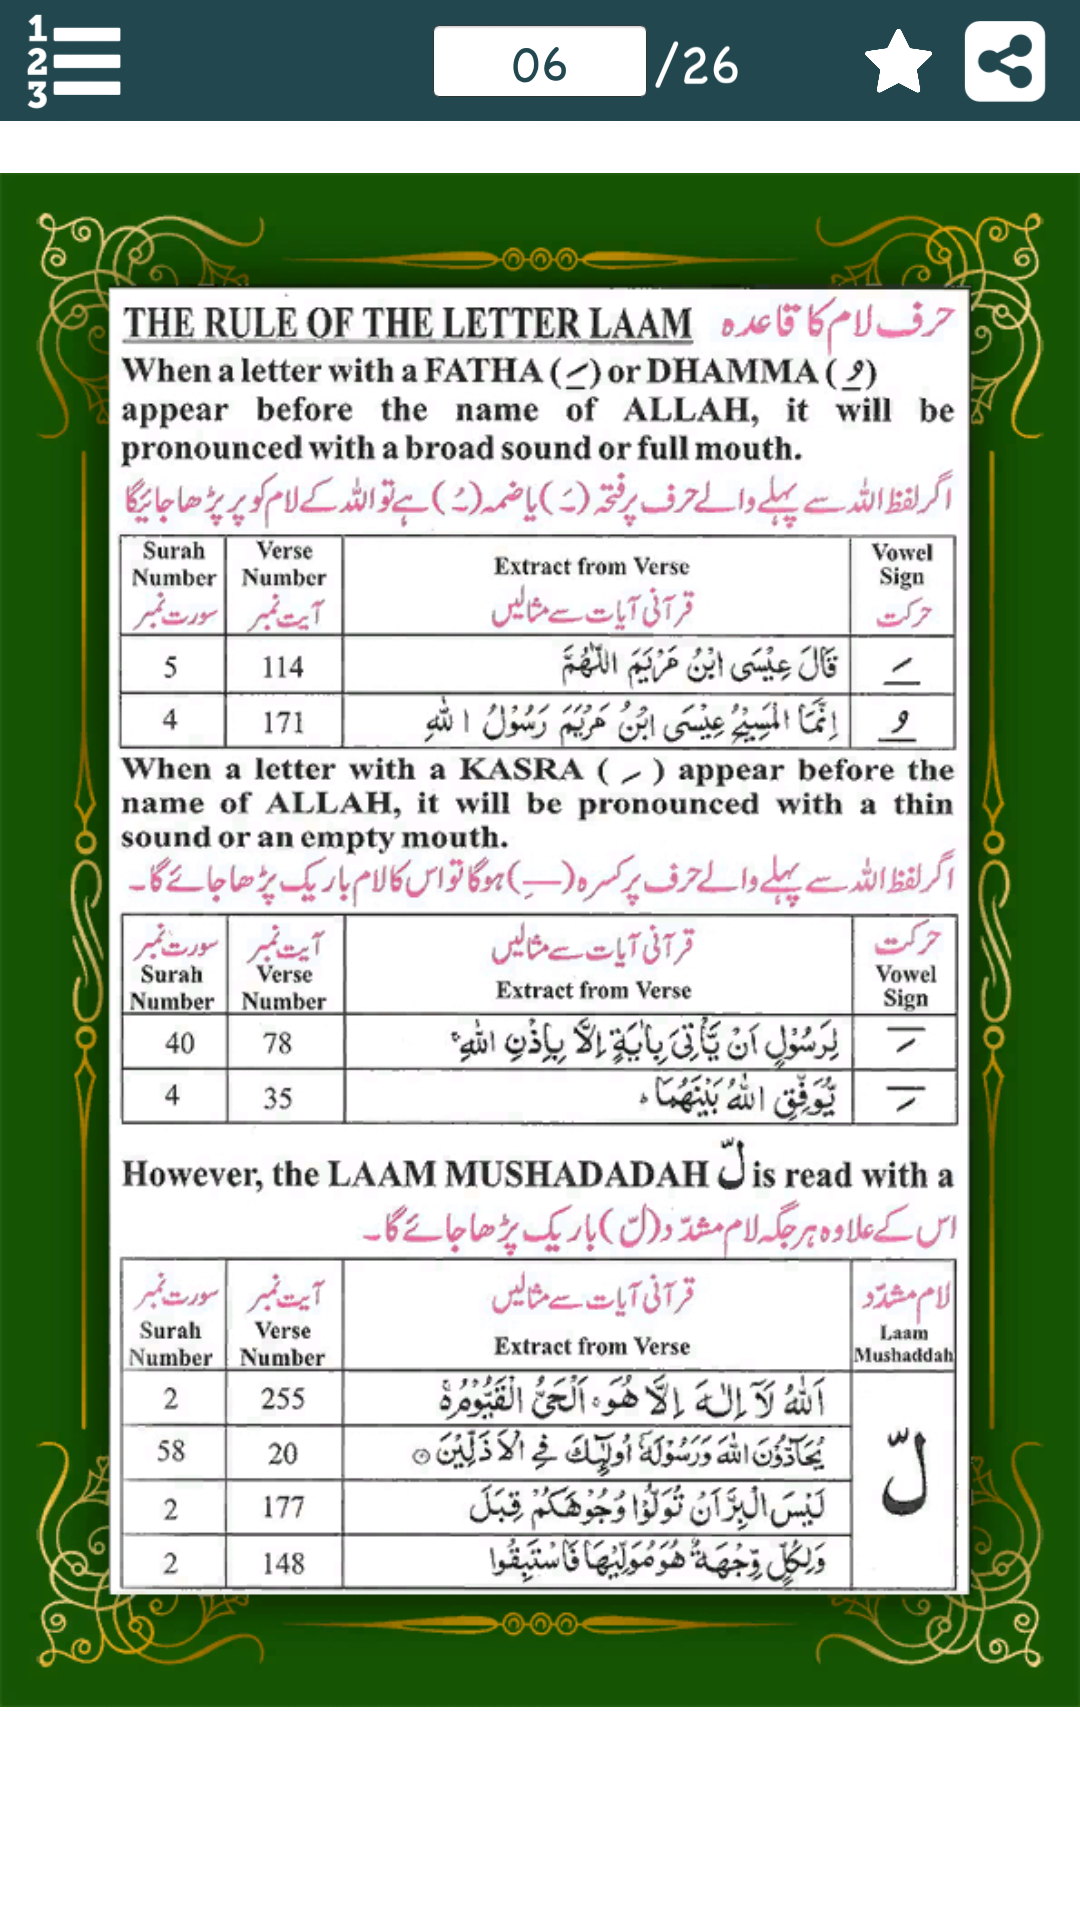 1
2
3
06 /26
THE RULE OF THE LETTER LAAM حرف لام کا قاعدہ
When a letter with a FATHA (َ) or DHAMMA (ُ)
appear before the name of ALLAH, it will be
pronounced with a broad sound or full mouth.
اگر لفظ اللہ سے پہلے والے حرف پر فتحہ (َ) یا ضمہ (ُ) ہے تو اللہ کے لام کو پر پڑھا جائیگا
Surah Number سورت نمبر | Verse Number آیت نمبر | Extract from Verse قرآنی آیات سے مثالیں | Vowel Sign حرکت
5 | 114 | قَالَ عِيْسَى ابْنُ مَرْيَمَ اللّٰهُمَّ | َ
4 | 171 | اِنَّمَا الْمَسِيْحُ عِيْسَى ابْنُ مَرْيَمَ رَسُوْلُ اللّٰهِ | ُ
When a letter with a KASRA (ِ) appear before the
name of ALLAH, it will be pronounced with a thin
sound or an empty mouth.
اگر لفظ اللہ سے پہلے والے حرف پر کسرہ (ِ) ہوگا تو اس کا لام باریک پڑھا جائے گا۔
سورت نمبر Surah Number | آیت نمبر Verse Number | قرآنی آیات سے مثالیں Extract from Verse | حرکت Vowel Sign
40 | 78 | لِرَسُوْلٍ اَنْ يَّاْتِىَ بِاٰيَةٍ اِلَّا بِاِذْنِ اللّٰهِ | ِ
4 | 35 | يُّوَفِّقِ اللّٰهُ بَيْنَهُمَا | ِ
However, the LAAM MUSHADADAH لّ is read with a
اس کے علاوہ ہر جگہ لام مشدّد (لّ) باریک پڑھا جائے گا۔
سورت نمبر Surah Number | آیت نمبر Verse Number | قرآنی آیات سے مثالیں Extract from Verse | لام مشدّد Laam Mushaddah
2 | 255 | اَللّٰهُ لَآ اِلٰهَ اِلَّا هُوَ اَلْحَىُّ الْقَيُّوْمُ | لّ
58 | 20 | يُحَآدُّوْنَ اللّٰهَ وَرَسُوْلَهٗ اُولٰٓئِكَ فِى الْاَذَلِّيْنَ
2 | 177 | لَيْسَ الْبِرَّ اَنْ تُوَلُّوْا وُجُوْهَكُمْ قِبَلَ
2 | 148 | وَلِكُلٍّ وِّجْهَةٌ هُوَ مُوَلِّيْهَا فَاسْتَبِقُوا